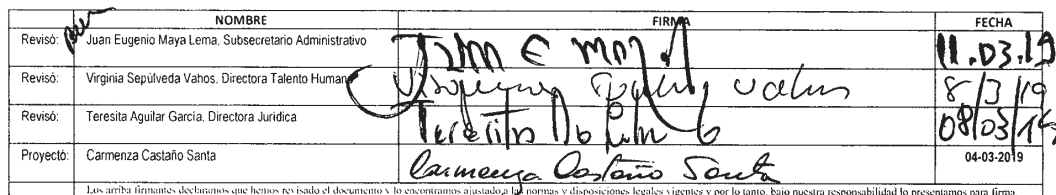 NOMBRE FIRMA FECHA
Revisó: Juan Eugenio Maya Lema, Subsecretario Administrativo Juan E Maya 11.03.19
Revisó: Virginia Sepúlveda Vahos, Directora Talento Humano Virginia Sepúlveda Vahos 8/3/19
Revisó: Teresita Aguilar García, Directora Jurídica Teresita Aguilar G 08/03/19
Proyectó: Carmenza Castaño Santa Carmenza Castaño Santa 04-03-2019
Los arriba firmantes declaramos que hemos revisado el documento y lo encontramos ajustado a las normas y disposiciones legales vigentes y por lo tanto, bajo nuestra responsabilidad lo presentamos para firma